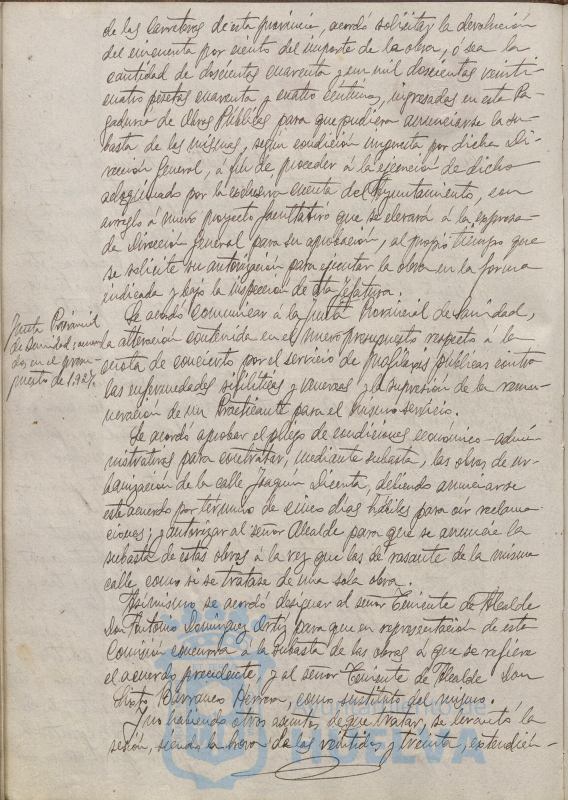 de las carreteras de esta provincia, acordó solicitar la devolución
del cincuenta por ciento del importe de la obra, ó sea la
cantidad de doscientas cuarenta y un mil doscientas veinti-
cuatro pesetas cuarenta y cuatro céntimos, ingresadas en esta Pa-
gaduría de Obras Públicas para que pudiera anunciarse la su-
basta de las mismas, según condición impuesta por dicha Di-
rección General, a fin de proceder á la ejecución de dicho
adoquinado por la exclusiva cuenta del Ayuntamiento, con
arreglo a nuevo proyecto facultativo que se elevará á la expresa-
da Dirección General para su aprobación, al propio tiempo que
se solicite su autorización para ejecutar la obra en la forma
indicada y bajo la inspección de esta Jefatura.
Junta Provincial
de Sanidad;
en el presu-
puesto de 1927.
Se acordó comunicar á la Junta Provincial de Sanidad,
la alteración contenida en el nuevo presupuesto respecto á la
cuota de concierto por el servicio de profilaxis públicas contra
las enfermedades sifilíticas y venéreas y la supresión de la remu-
neración de un Practicante para el mismo servicio.
Se acordó aprobar el pliego de condiciones económico-admi-
nistrativas para contratar, mediante subasta, las obras de ur-
banización de la calle Joaquin Dicenta, debiendo anunciarse
este acuerdo por término de cinco días hábiles para oír reclama-
ciones; y autorizar al señor Alcalde para que se anuncie la
subasta de estas obras á la vez que las de rasante de la misma
calle, como si se tratase de una sola obra.
Asimismo se acordó designar al señor Teniente de Alcalde
Don Antonio Domínguez Ortiz para que en representación de esta
Comisión concurra á la subasta de las obras á que se refiere
el acuerdo precedente, y al señor Teniente de Alcalde Don
Sixto Barranco Herrera, como sustituto del mismo.
Y no habiendo otros asuntos de que tratar, se levantó la
sesión, siendo la hora de las veintidós y treinta, extendién-
Ayuntamiento de
HUELVA